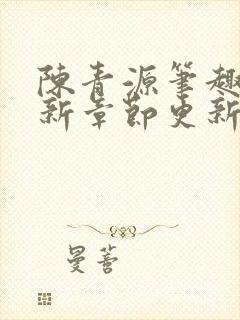 陳青源筆趣
新章節更新
曼蒼